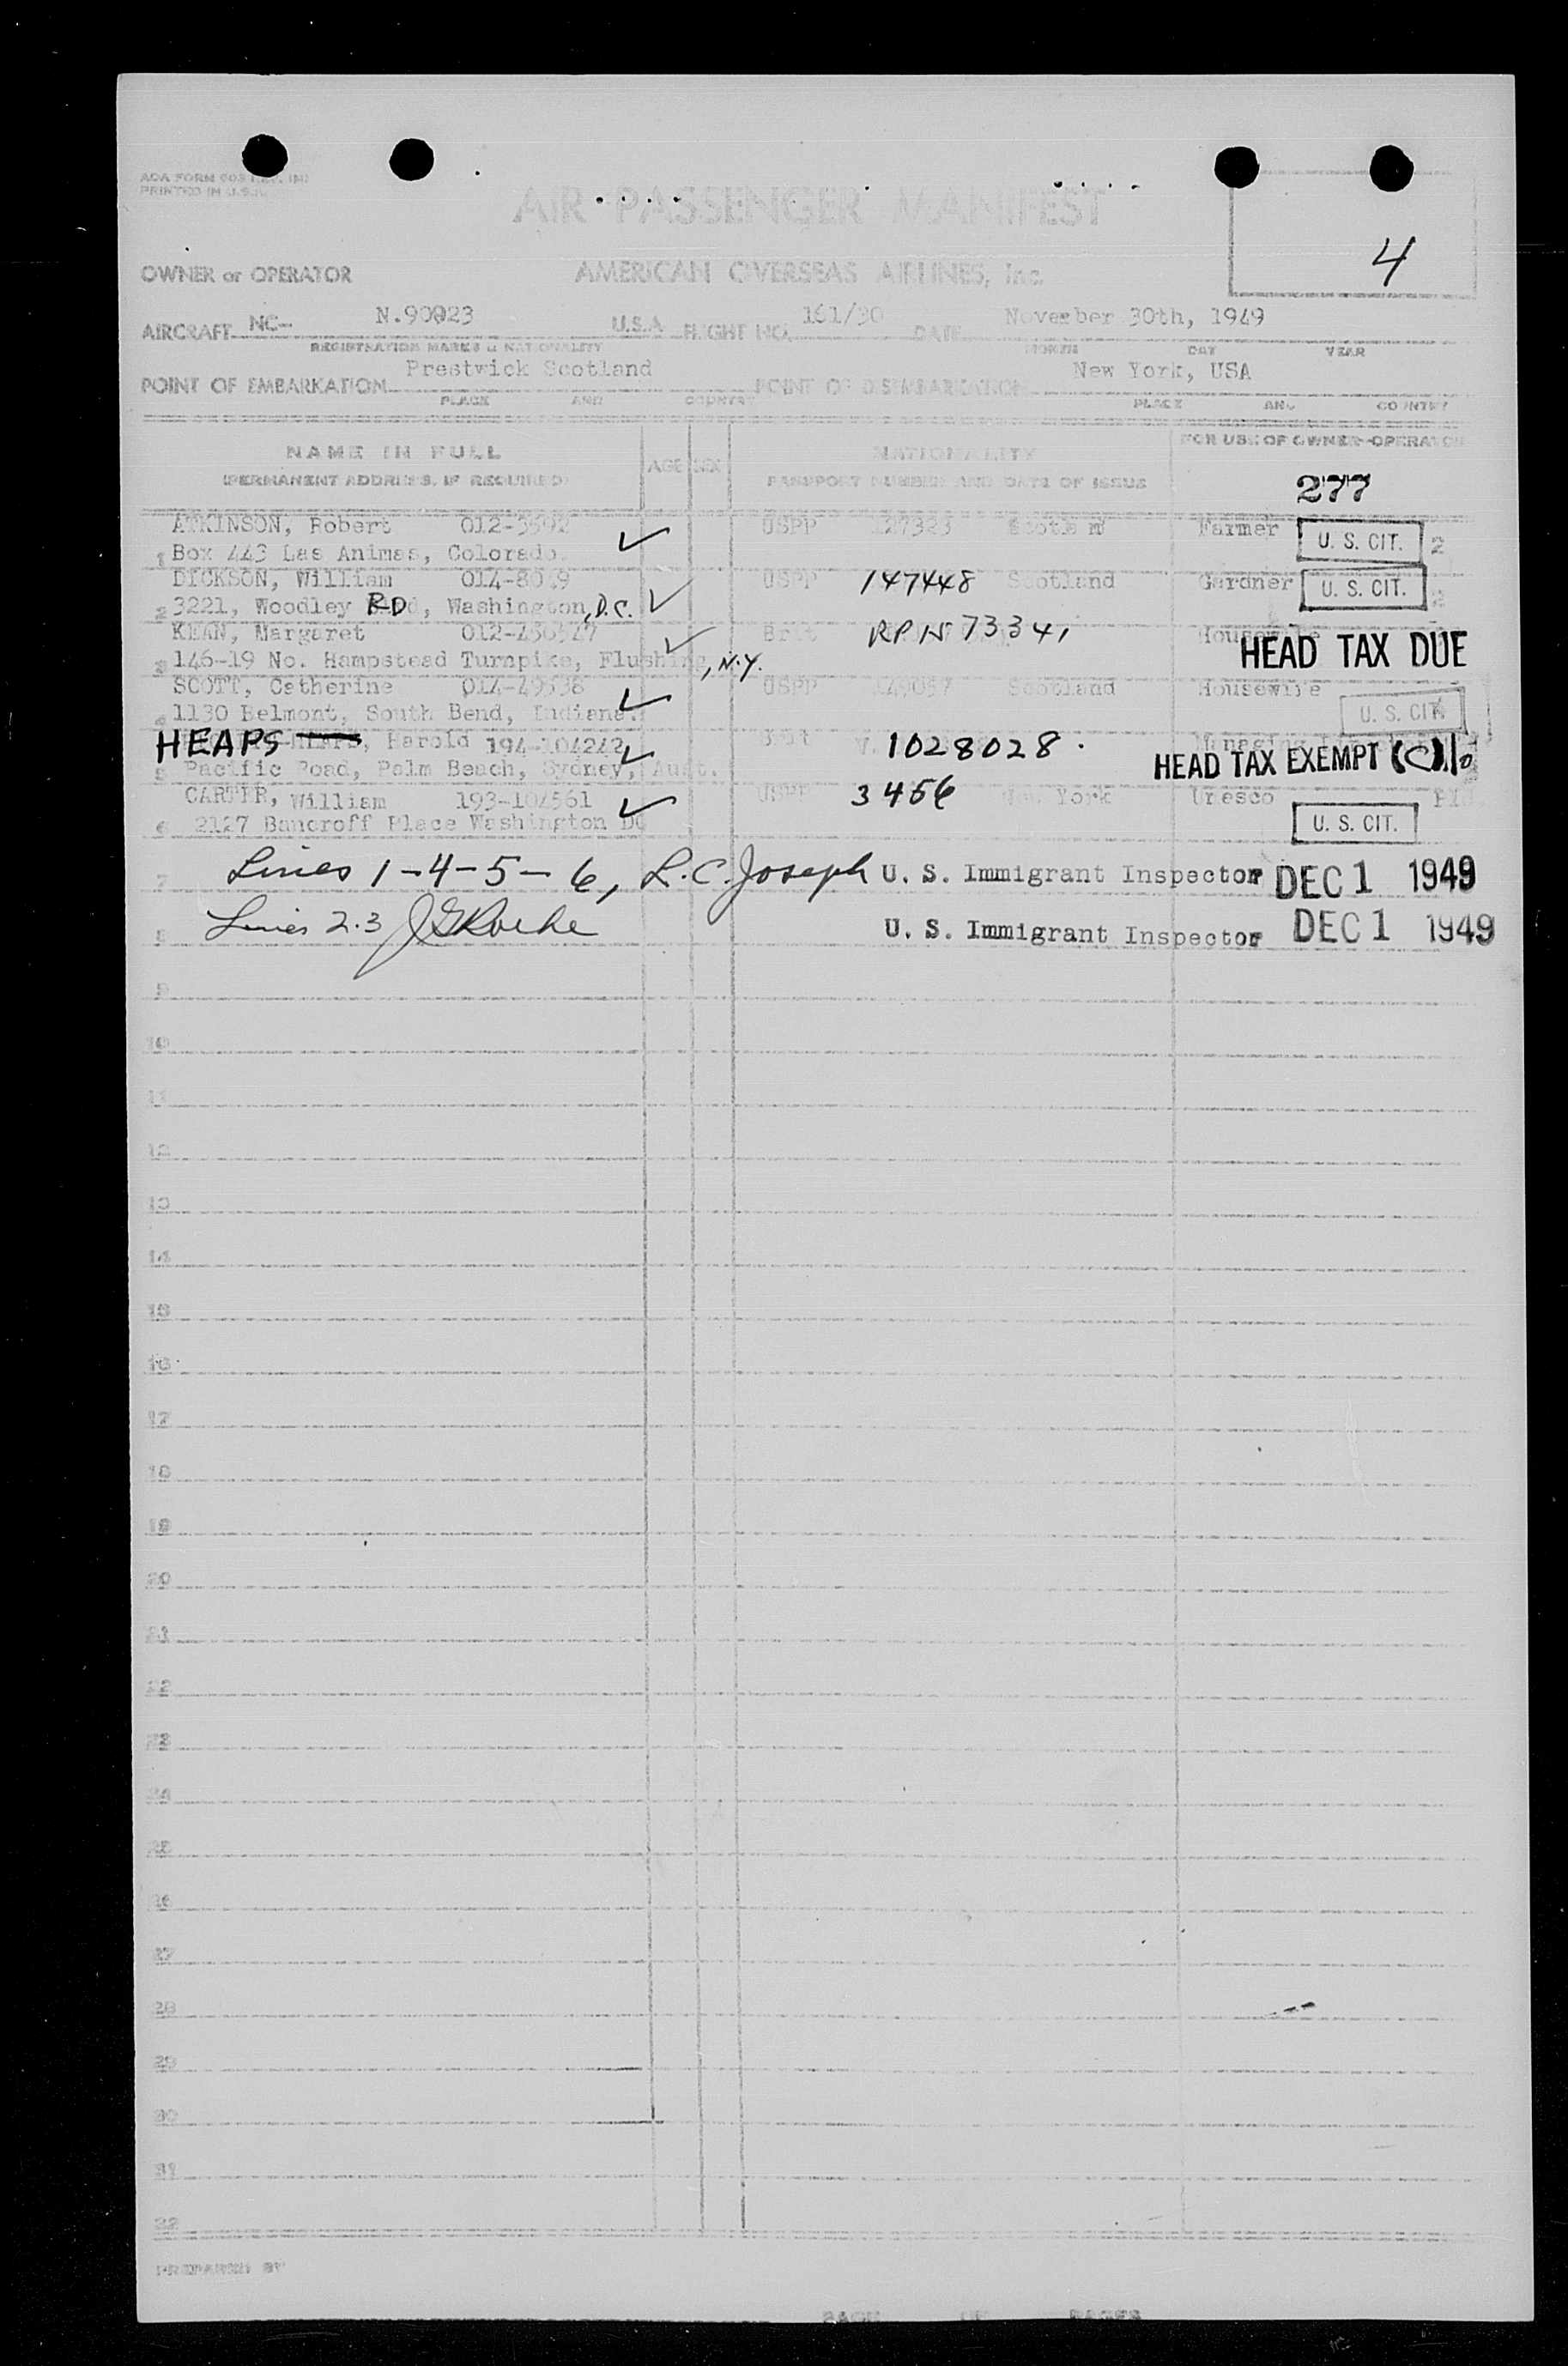 4
PRINTED IN U.S.A.
AIR PASSENGER MANIFEST
OWNER or OPERATOR AMERICAN OVERSEAS AIRLINES, Inc.
AIRCRAFT NC- N.90923 U.S.A FLIGHT NO. 161/30 DATE November 30th, 1949
REGISTRATION MARKS & NATIONALITY MONTH DAY YEAR
POINT OF EMBARKATION Prestwick Scotland POINT OF DISEMBARKATION New York, USA
PLACE AND COUNTRY PLACE AND COUNTRY
NAME IN FULL AGE SEX NATIONALITY FOR USE OF OWNER-OPERATOR
(PERMANENT ADDRESS, IF REQUIRED) PASSPORT NUMBER AND DATE OF ISSUE
277
ATKINSON, Robert 012-5592 USPP 127323 Farmer U. S. CIT. 2
1 Box 443 Las Animas, Colorado.
DICKSON, William USPP 147448 Scotland Gardner U. S. CIT.
2 3221, Woodley RD, Washington, D.C.
KEAN, Margaret Brit 73341 Housewife HEAD TAX DUE
3 146-19 No. Hampstead Turnpike, Flushing, N.Y.
SCOTT, Catherine 014-49538 USPP 149057 Scotland Housewife
4 1130 Belmont, South Bend, Indiana. U. S. CIT.
HEAPS, Harold 194-104242 Brit 1028028. Managing HEAD TAX EXEMPT
5 Pacific Road, Palm Beach, Sydney, Aust.
CARTER, William 193-104561 USPP 3456 New York Unesco
6 2127 Bancroff Place Washington DC U. S. CIT.
7 Lines 1-4-5-6, L.C. Joseph U. S. Immigrant Inspector DEC 1 1949
8 Lines 2.3 U. S. Immigrant Inspector DEC 1 1949
9
10
11
12
13
14
15
16
17
18
19
20
21
22
23
24
25
26
27
28
29
30
31
32
PREPARED BY
PAGE OF PAGES